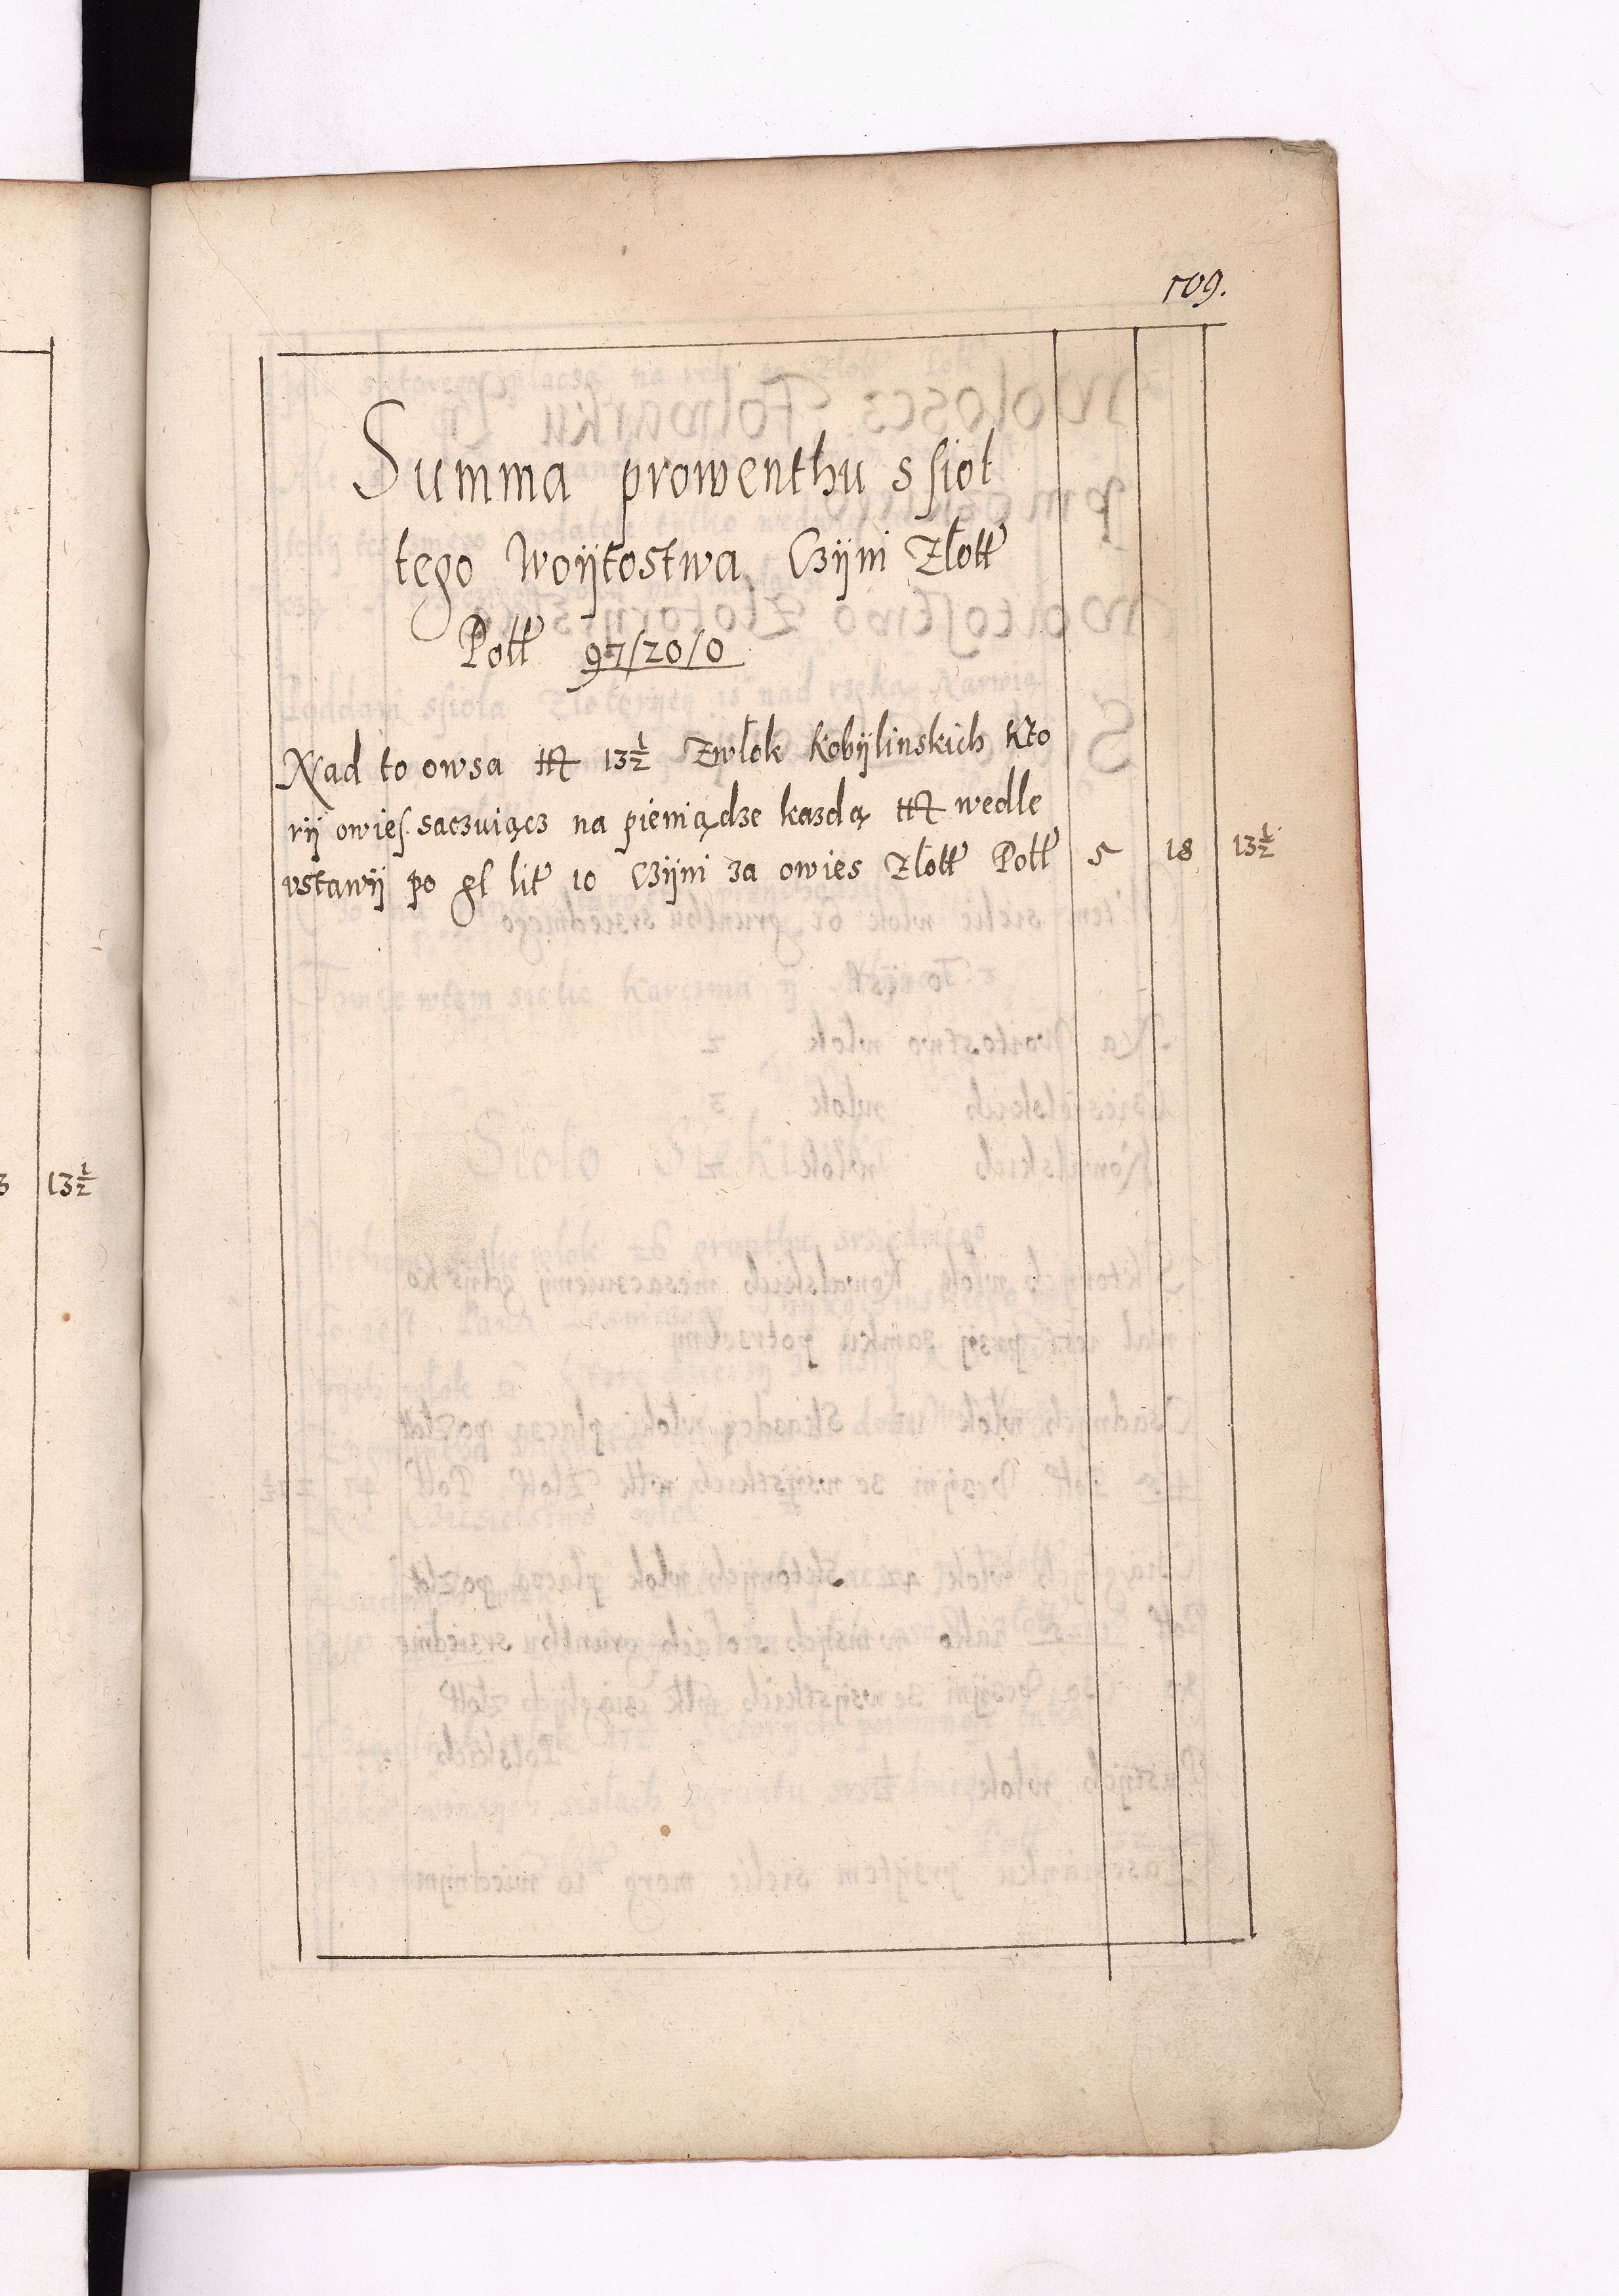 109.
Summa prowenthu s sioł
tego Woÿtostwa Czÿni Złott
Poll 97/20/0
Nad to owsa 13½ Zwłok Kobÿlinskich Kto
rÿ owies saczuiącz na pieniądze kazdą wedle
vstawÿ po gl lit 10 Czÿni za owies Złott Poll 5 18 13½
13½